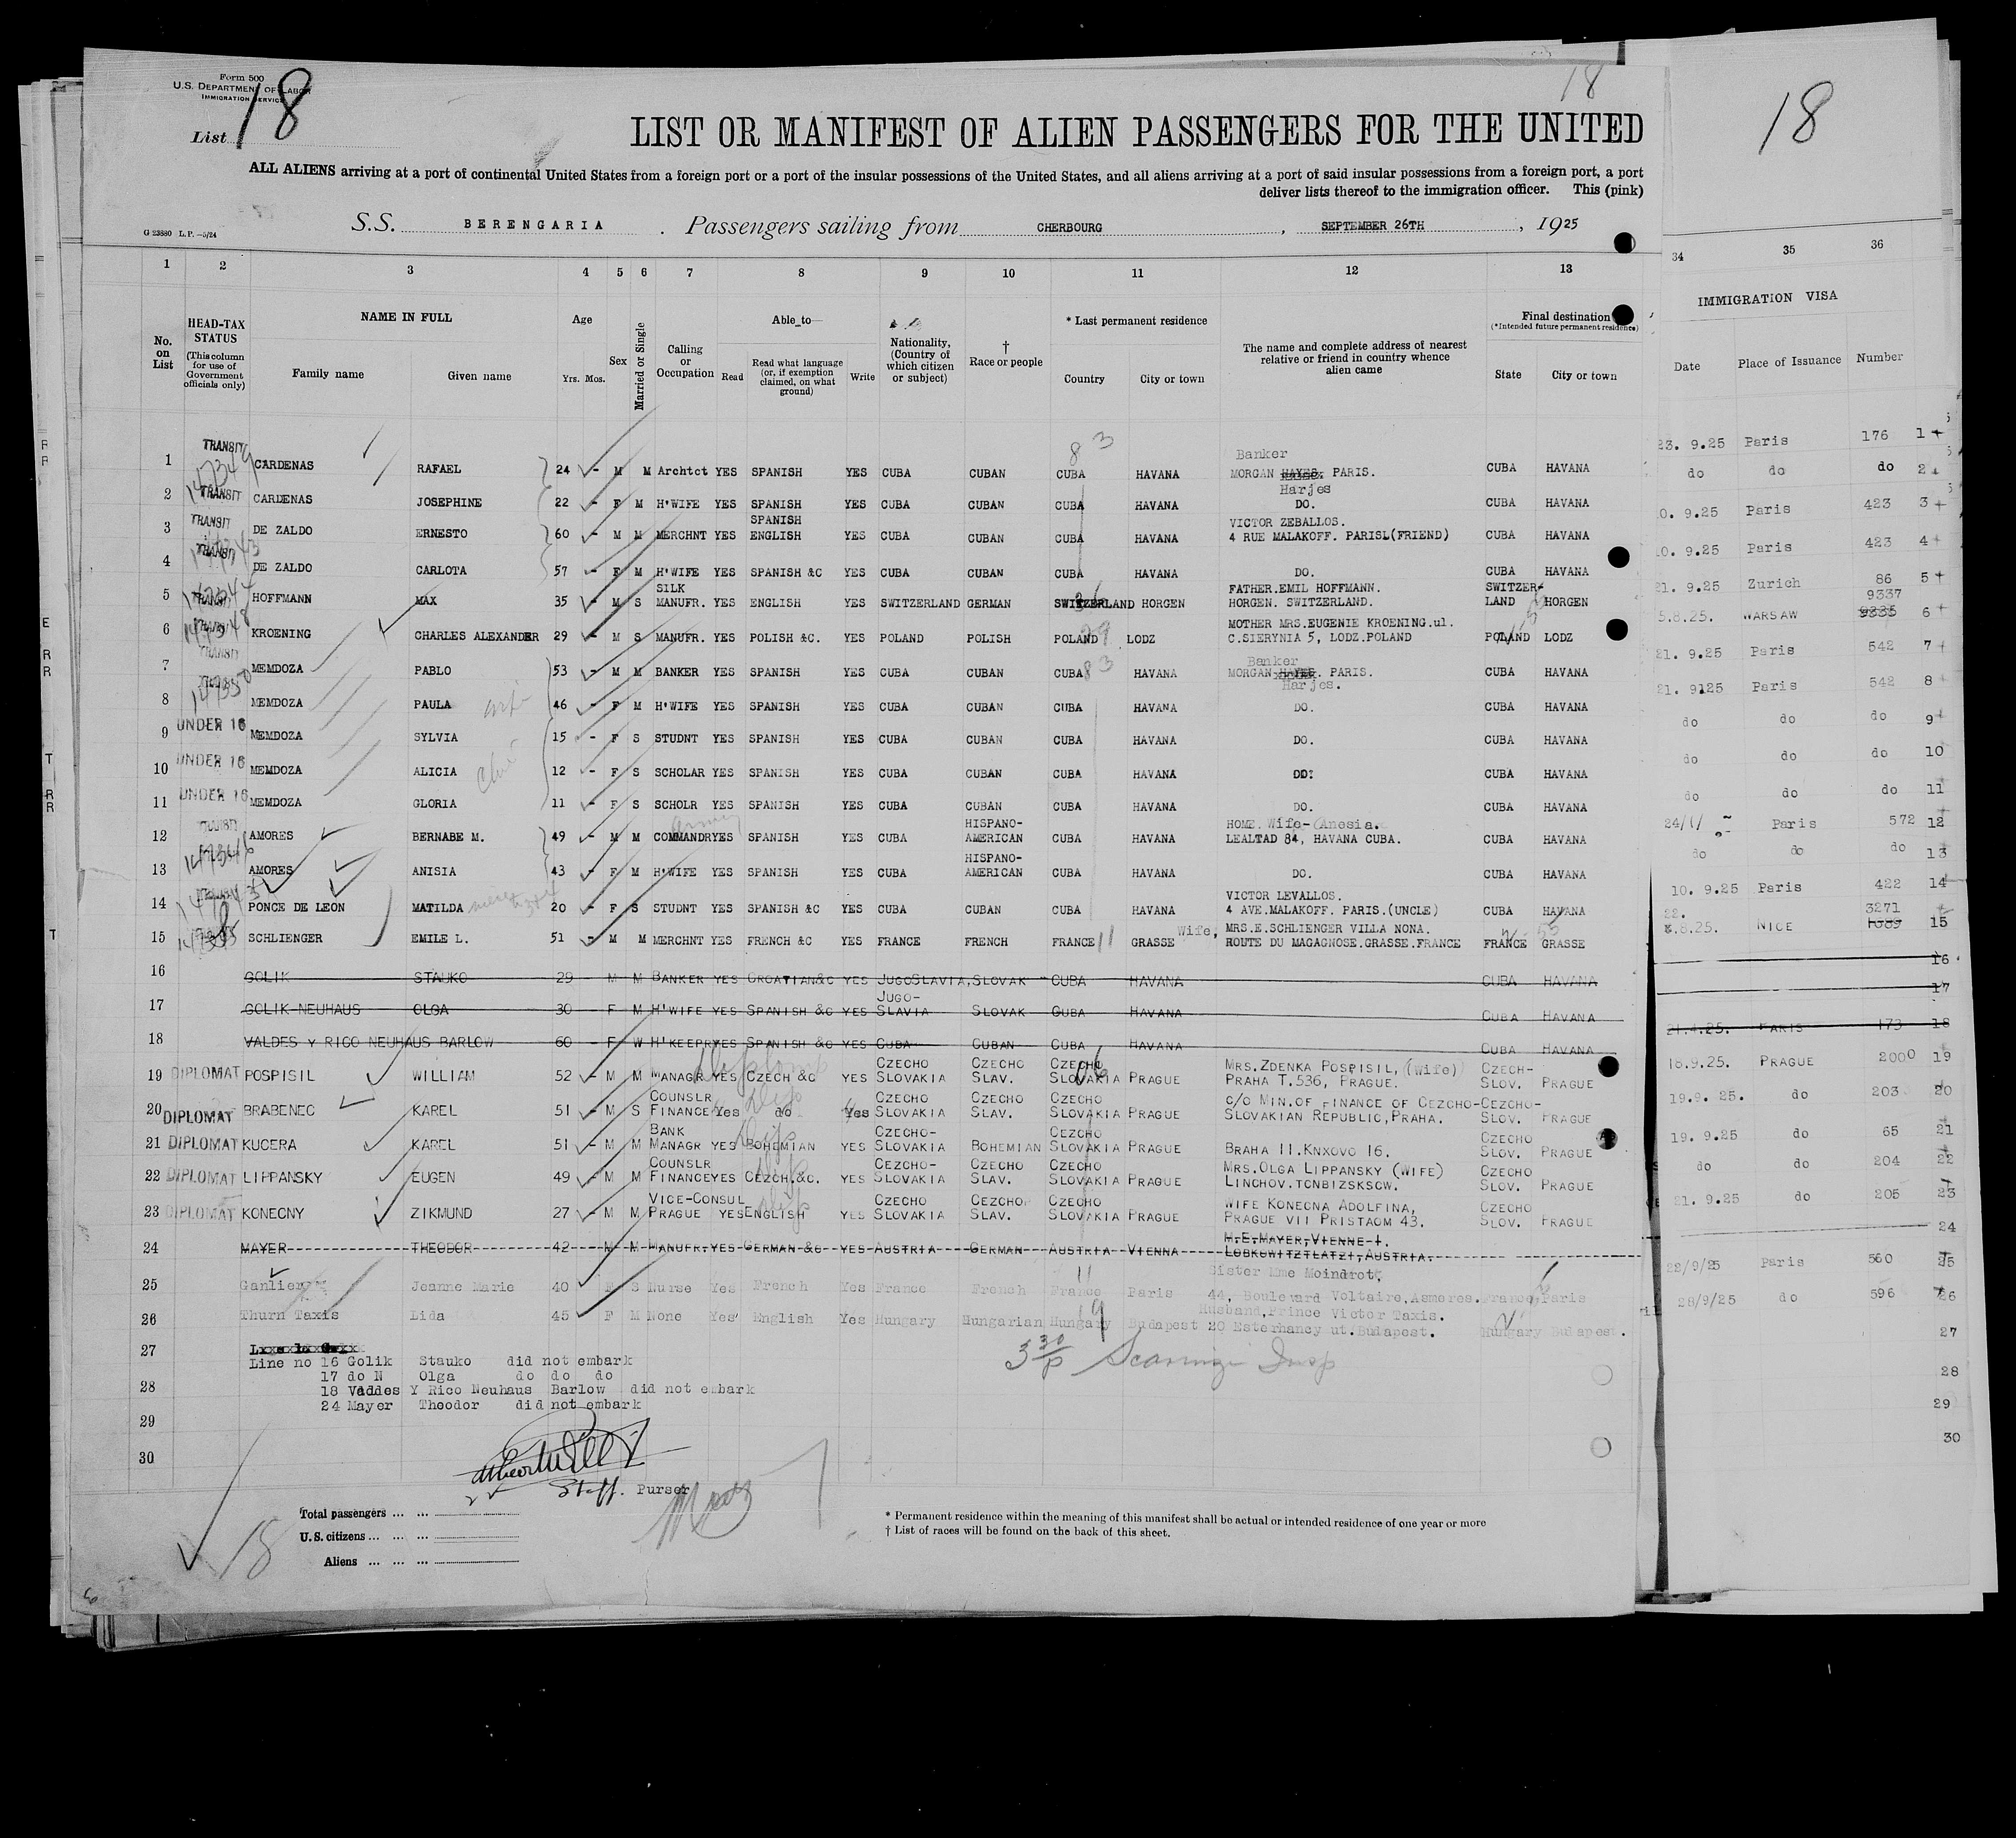 Form 500
U.S. DEPARTMENT OF LABOR
IMMIGRATION SERVICE
List 18
18
18
LIST OR MANIFEST OF ALIEN PASSENGERS FOR THE UNITED
ALL ALIENS arriving at a port of continental United States from a foreign port or a port of the insular possessions of the United States, and all aliens arriving at a port of said insular possessions from a foreign port, a port
deliver lists thereof to the immigration officer. This (pink)
G 23880 L.P.—5/24
S.S. BERENGARIA. Passengers sailing from CHERBOURG, SEPTEMBER 26TH, 1925
1 2 3 4 5 6 7 8 9 10 11 12 13 34 35 36
No. on List
HEAD-TAX STATUS
(This column for use of Government officials only)
NAME IN FULL
Family name Given name
Age
Yrs. Mos.
Sex
Married or Single
Calling or Occupation
Able to—
Read
Read what language (or, if exemption claimed, on what ground)
Write
Nationality, (Country of which citizen or subject)
† Race or people
* Last permanent residence
Country City or town
The name and complete address of nearest relative or friend in country whence alien came
Final destination
(*Intended future permanent residence)
State City or town
IMMIGRATION VISA
Date Place of Issuance Number
1 TRANSIT CARDENAS RAFAEL 24 - M M Archtct YES SPANISH YES CUBA CUBAN CUBA HAVANA Banker MORGAN HAYES. PARIS. Harjes CUBA HAVANA 23. 9.25 Paris 176 1
2 TRANSIT CARDENAS JOSEPHINE 22 - F M H'WIFE YES SPANISH YES CUBA CUBAN CUBA HAVANA DO. CUBA HAVANA do do do 2
3 TRANSIT DE ZALDO ERNESTO 60 - M M MERCHNT YES SPANISH ENGLISH YES CUBA CUBAN CUBA HAVANA VICTOR ZEBALLOS. 4 RUE MALAKOFF. PARISL(FRIEND) CUBA HAVANA 10. 9.25 Paris 423 3
4 TRANSIT DE ZALDO CARLOTA 57 - F M H'WIFE YES SPANISH &C YES CUBA CUBAN CUBA HAVANA DO. CUBA HAVANA 10. 9.25 Paris 423 4
5 TRANSIT HOFFMANN MAX 35 - M S SILK MANUFR. YES ENGLISH YES SWITZERLAND GERMAN SWITZERLAND HORGEN FATHER.EMIL HOFFMANN. HORGEN. SWITZERLAND. SWITZER-LAND HORGEN 21. 9.25 Zurich 86 5
6 TRANSIT KROENING CHARLES ALEXANDER 29 - M S MANUFR. YES POLISH &C. YES POLAND POLISH POLAND LODZ MOTHER MRS.EUGENIE KROENING.ul. C.SIERYNIA 5, LODZ.POLAND POLAND LODZ 5.8.25. WARSAW 9337 9335 6
7 TRANSIT MEMDOZA PABLO 53 - M M BANKER YES SPANISH YES CUBA CUBAN CUBA HAVANA Banker MORGAN HAYES. PARIS. Harjes. CUBA HAVANA 21. 9.25 Paris 542 7
8 MEMDOZA PAULA 46 - F M H'WIFE YES SPANISH YES CUBA CUBAN CUBA HAVANA DO. CUBA HAVANA 21. 9125 Paris 542 8
9 UNDER 16 MEMDOZA SYLVIA 15 - F S STUDNT YES SPANISH YES CUBA CUBAN CUBA HAVANA DO. CUBA HAVANA do do do 9
10 UNDER 16 MEMDOZA ALICIA 12 - F S SCHOLAR YES SPANISH YES CUBA CUBAN CUBA HAVANA DO: CUBA HAVANA do do do 10
11 UNDER 16 MEMDOZA GLORIA 11 - F S SCHOLR YES SPANISH YES CUBA CUBAN CUBA HAVANA DO. CUBA HAVANA do do do 11
12 TRANSIT AMORES BERNABE M. 49 - M M COMMANDR YES SPANISH YES CUBA HISPANO-AMERICAN CUBA HAVANA HOME. Wife- Anesia. LEALTAD 84, HAVANA CUBA. CUBA HAVANA Paris 572 12
13 AMORES ANISIA 43 - F M H'WIFE YES SPANISH YES CUBA HISPANO-AMERICAN CUBA HAVANA DO. CUBA HAVANA do do do 13
14 PONCE DE LEON MATILDA 20 - F S STUDNT YES SPANISH &C YES CUBA CUBAN CUBA HAVANA VICTOR LEVALLOS. 4 AVE.MALAKOFF. PARIS.(UNCLE) CUBA HAVANA 10. 9.25 Paris 422 14
15 SCHLIENGER EMILE L. 51 - M M MERCHNT YES FRENCH &C YES FRANCE FRENCH FRANCE GRASSE Wife, MRS.E.SCHLIENGER VILLA NONA. ROUTE DU MAGAGNOSE.GRASSE.FRANCE FRANCE GRASSE 22. 8.25. NICE 3271 15
16 GOLIK STAUKO 29 - M M BANKER YES CROATIAN&C YES JUGOSLAVIA, SLOVAK CUBA HAVANA CUBA HAVANA 16
17 GOLIK-NEUHAUS OLGA 30 - F M H'WIFE YES SPANISH &C YES JUGO-SLAVIA SLOVAK CUBA HAVANA CUBA HAVANA 17
18 VALDES Y RICO NEUHAUS BARLOW 60 - F W H'KEEPR YES SPANISH &C YES CUBA CUBAN CUBA HAVANA CUBA HAVANA 21.4.25. PARIS 173 18
19 DIPLOMAT POSPISIL WILLIAM 52 - M M MANAGR YES CZECH &C YES CZECHO SLOVAKIA CZECHO SLAV. CZECHO SLOVAKIA PRAGUE MRS.ZDENKA POSPISIL, (Wife) PRAHA T.536, PRAGUE. CZECH-SLOV. PRAGUE 18.9.25. PRAGUE 2000 19
20 DIPLOMAT BRABENEC KAREL 51 - M S COUNSLR FINANCE Yes do Yes CZECHO SLOVAKIA CZECHO SLAV. CZECHO SLOVAKIA PRAGUE C/O MIN.OF FINANCE OF CEZCHO-SLOVAKIAN REPUBLIC,PRAHA. CEZCHO-SLOV. PRAGUE 19.9. 25. do 203 20
21 DIPLOMAT KUCERA KAREL 51 - M M BANK MANAGR YES BOHEMIAN YES CZECHO-SLOVAKIA BOHEMIAN CEZCHO SLOVAKIA PRAGUE BRAHA II.KNXOVO 16. CZECHO SLOV. PRAGUE 19. 9.25 do 65 21
22 DIPLOMAT LIPPANSKY EUGEN 49 - M M COUNSLR FINANCE YES CEZCH.&C. YES CEZCHO-SLOVAKIA CZECHO SLAV. CZECHO SLOVAKIA PRAGUE MRS.OLGA LIPPANSKY (WIFE) LINCHOV.TCNBIZSKSCW. CZECHO SLOV. PRAGUE do do 204 22
23 DIPLOMAT KONECNY ZIKMUND 27 - M M VICE-CONSUL PRAGUE YES ENGLISH YES CZECHO SLOVAKIA CEZCHO SLAV. CZECHO SLOVAKIA PRAGUE WIFE KONECNA ADOLFINA, PRAGUE VII PRISTAOM 43. CZECHO SLOV. PRAGUE 21. 9.25 do 205 23
24 MAYER THEODOR 42 - M M MANUFR. YES GERMAN &C YES AUSTRIA GERMAN AUSTRIA VIENNA M.E.MAYER,VIENNE I. LOBKOWITZTLATZI,AUSTRIA. 24
25 Ganlier M Jeanne Marie 40 F S Nurse Yes French Yes France French France Paris Sister Mme Moindrot, 44, Boulevard Voltaire,Asmeres. France Paris 22/9/25 Paris 560 25
26 Thurn Taxis Lida 45 F M None Yes English Yes Hungary Hungarian Hungary Budapest Husband,Prince Victor Taxis. 20 Esterhancy ut.Budapest. Hungary Budapest. 28/9/25 do 596 26
27 27
Line no 16 Golik Stauko did not embark
17 do N Olga do do do
28 18 Valdes Y Rico Neuhaus Barlow did not embark 28
24 Mayer Theodor did not embark
29 29
30 30
Staff. Purser
Total passengers ... ...
U.S. citizens ... ...
Aliens ... ... ...
18
* Permanent residence within the meaning of this manifest shall be actual or intended residence of one year or more
† List of races will be found on the back of this sheet.